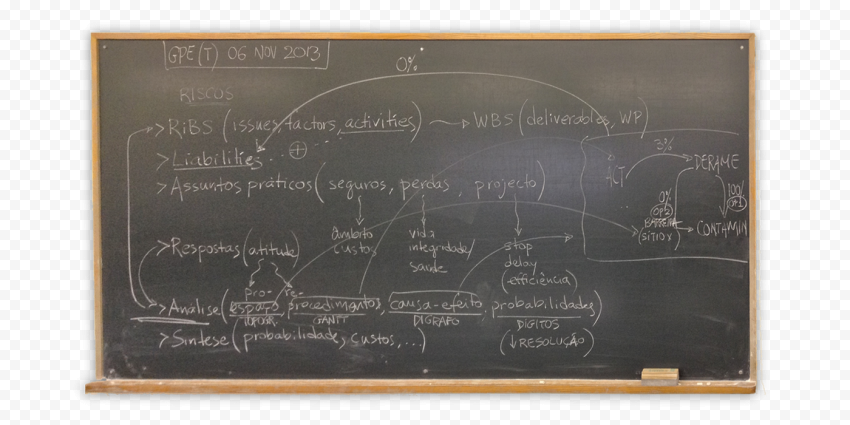 GPE(T) 06 NOV 2013
0%
RISCOS
> RiBS (issues, factors, activities) → WBS (deliverables, WP)
> Liabilities
> Assuntos práticos (seguros, perdas, projecto)
âmbito
custos
vida
integridade/
saúde
stop
delay
(efficiência)
> Respostas (atitude)
pro- re-
> Análise (espaço, procedimentos, causa-efeito, probabilidades)
TOPOGR. GANTT DIGRAFO DIGITOS
> Síntese (probabilidade, custos, ...) (↓ RESOLUÇÃO)
ACT 3% DERAME
0% 100%
OP2 OP1
BARREIRA CONTAMIN
(SITIO X)